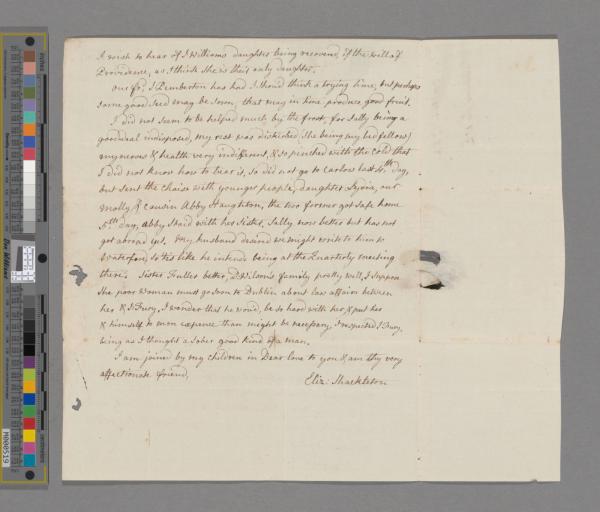 I wish to hear of J Williams daughter being recovered, if the will of
Providence, as I think she is their only daughter.
our fd. J Pemberton has had I should think a trying time, but perhaps
some good seed may be sown, that may in time produce good fruit.
I did not seem to be helped much by the frost, for Sally being a
good deal indisposed, my rest was disturbed she being my bedfellow
my nerves & health very indifferent, & so pinched with the cold that
I did not know how to bear it, so did not go to Carlow last 4th day,
but sent the chaise with younger people, daughter Lydia, our
Molly & cousin Abby Haughton, the two former got safe home
5th day, Abby staid with her sister, Sally now better but has not
got abroad yet. My husband desired we might write to him to
Waterford, so tis like he intends being at the Quarterly meeting
there. Sister Fuller better, D. Wilsons family pretty well, I suppose
the poor woman must go soon to Dublin about law affairs between
her & J. Fury, I wonder that he wou'd, be so hard with her & put her
& himself to more expence than might be necessary, I respected J Fury,
as I thought a sober good kind of a man.
I am joined by my children in Dear love to you & am thy very
affectionate friend,
Eliz: Shackleton
Inches
Centimetres
M000519